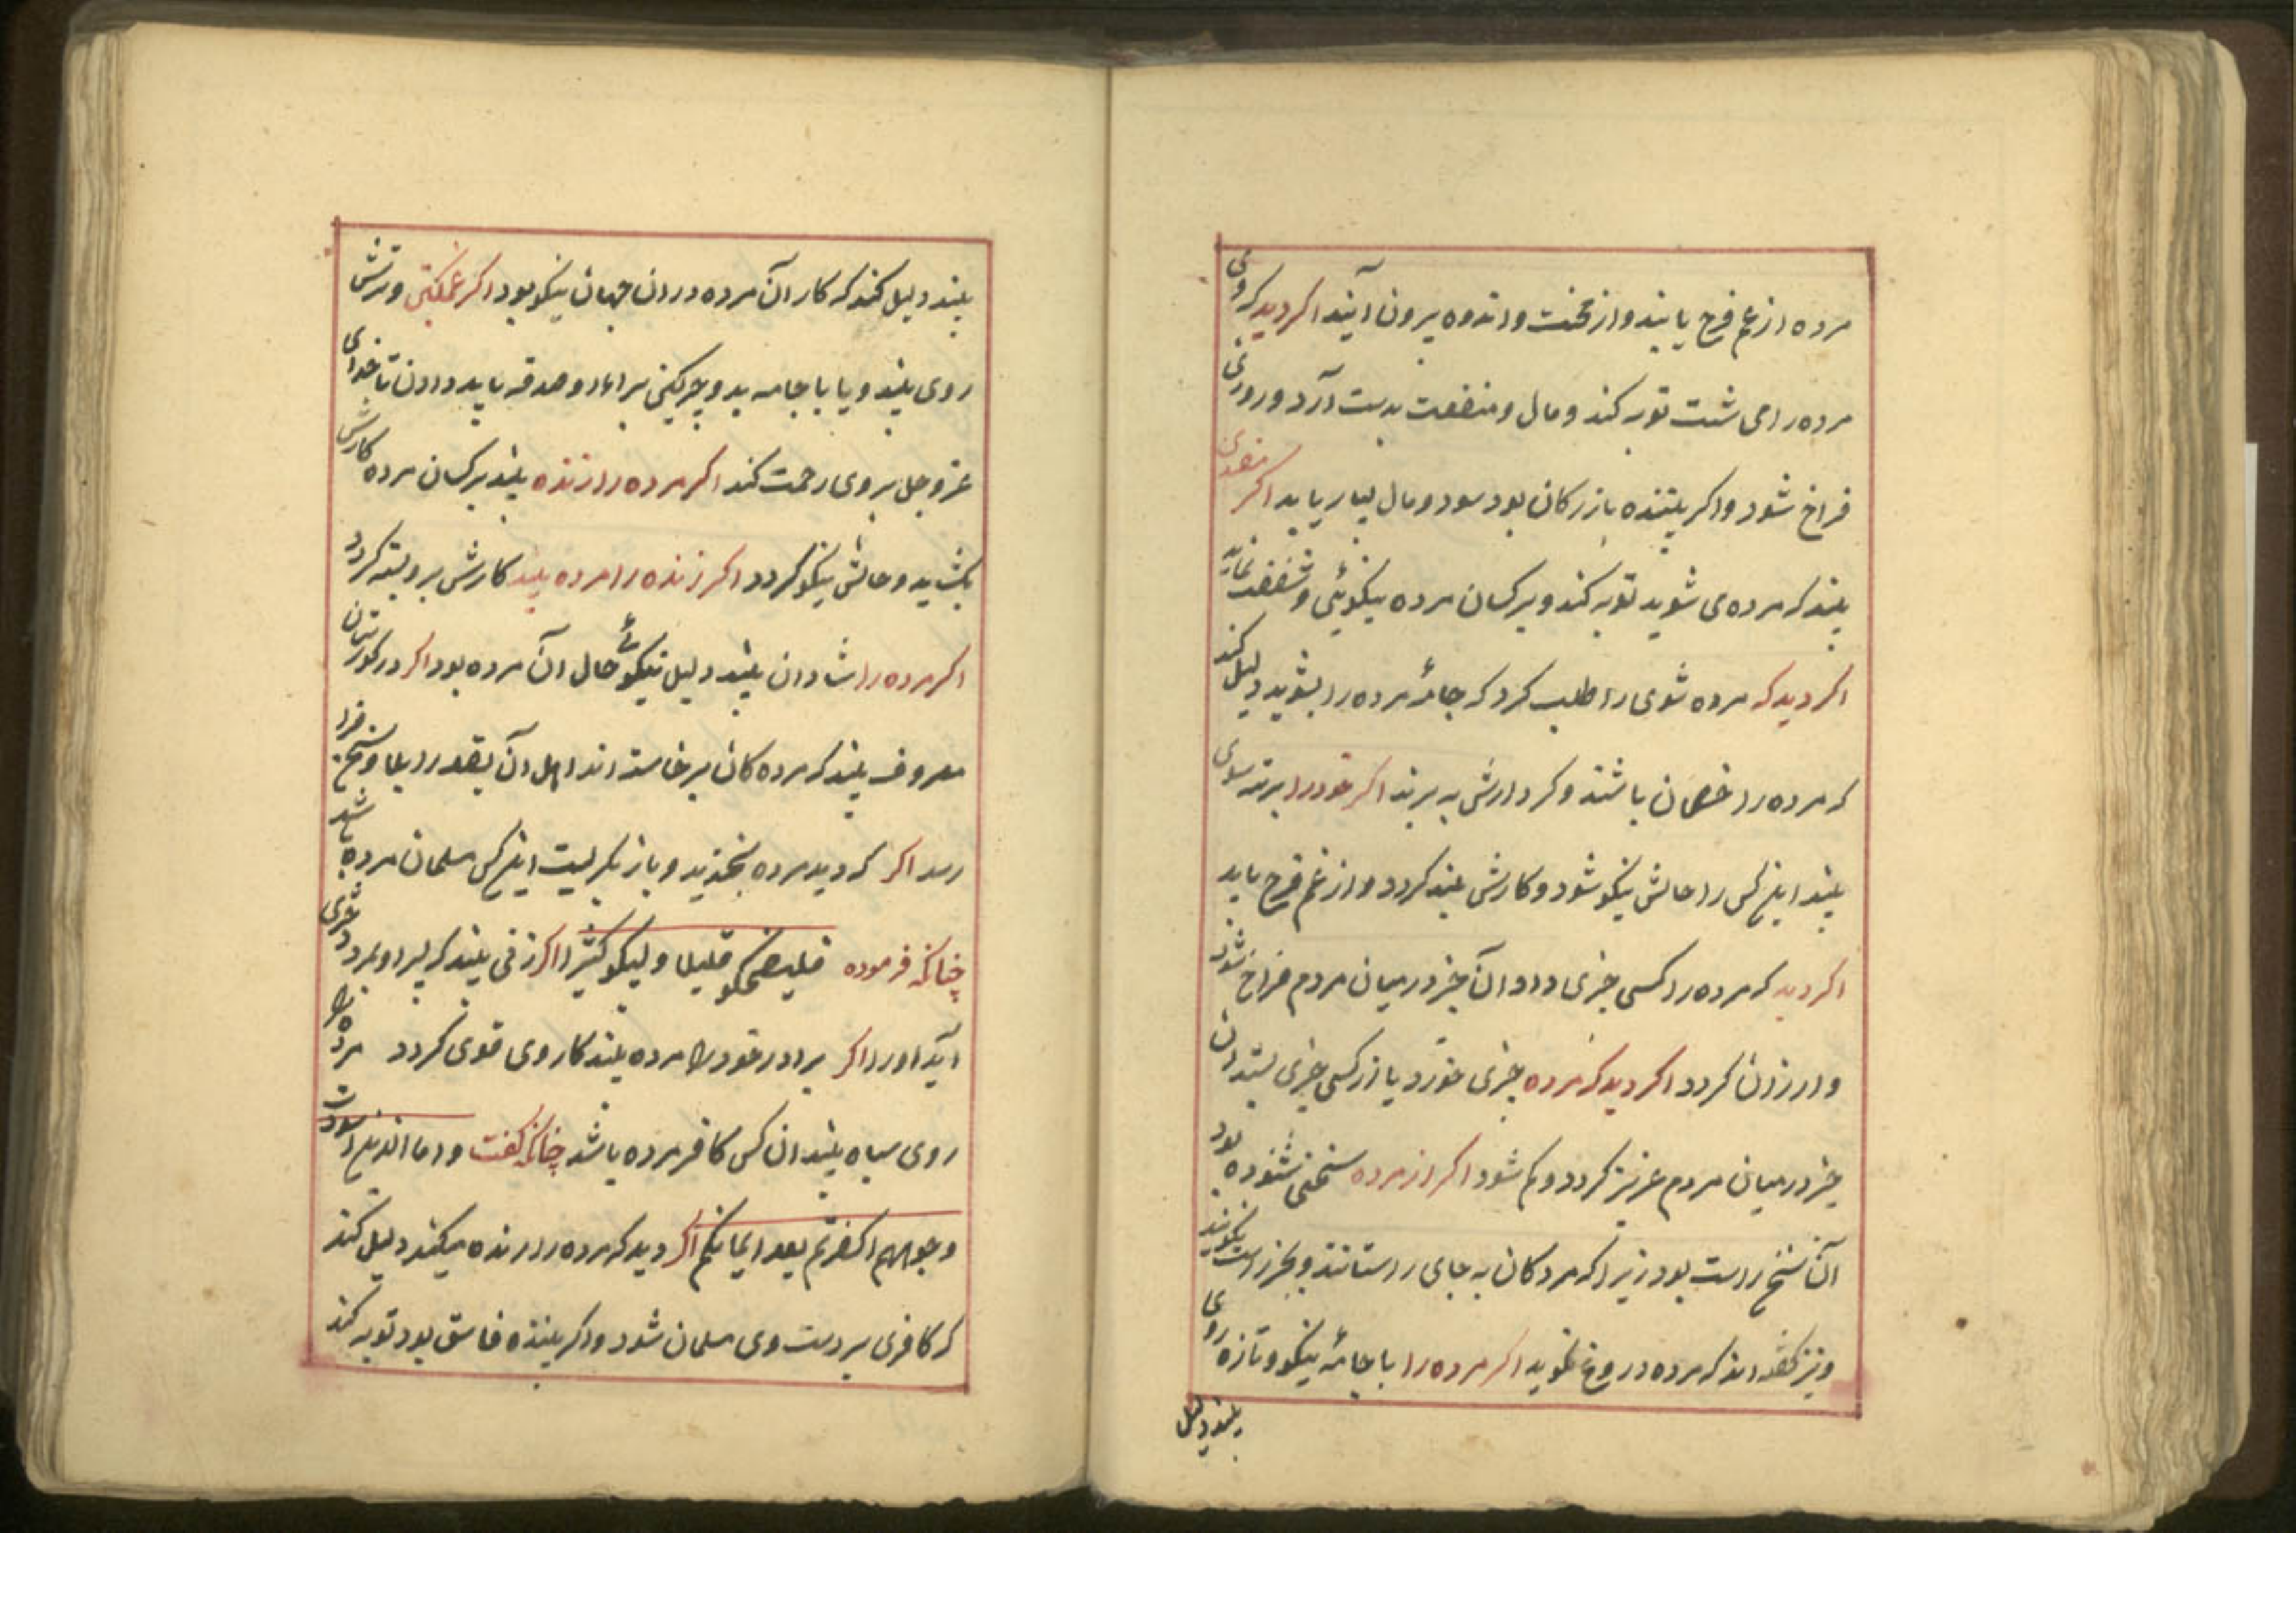 مرده از غم فرح یابند و از محنت و اندوه بیرون آیند اکر دید که وی
مرده را می شست توبه کند و مال و منفعت بدست آرد و روزی
فراخ شود و اکر بیننده بازرکان بود سود و مال بسیار یابد اکر
بیند که مرده می شوید توبه کند و بر کسان مرده نیکوئی و شفقت نماید
اکر دید که مرده شوی را طلب کرد که جامهٔ مرده را بشوید دلیل کند
که مرده را خصمان باشند و کردارش به برند اکر خود را برهنه
بیند اینکس را حالش نیکو شود و کارش بلند کردد و از غم فرح یابد
اکر دید که مرده را کسی چیزی داد و آن چیز در میان مردم فراخ شود
و ارزان کردد اکر دید که مرده چیزی خورد یا از کسی چیزی بستد آن
چیز در میان مردم عزیز کردد و کم شود اکر از مرده سخنی شنوده بود
آن سخن راست بود زیرا که مردکان به جای راستانند و بجز راست نکویند
و نیز کفته اند که مرده دروغ نکوید اکر مرده را با جامهٔ نیکو و تازه روی
بیند دلیل
بیند دلیل کند که کار آن مرده در ان جهان نیکو بود اکر غمکین و ترش
روی بیند و یا با جامه بد و چرکین مر او را صدقه باید دادن تا خدای
عزوجل بر وی رحمت کند اکر مرده را زنده بیند بر کسان مرده کارش
بکشاید و حالش نیکو کردد اکر زنده را مرده بیند کارش برو بسته کردد
اکر مرده را شادان بیند دلیل نیکوئی حال آن مرده بود اکر در کورستان
معروف بیند که مرده کان برخاسته اند اهل آن بقعه را بلا و
رسد اکر که دید مرده بخندید و باز بکریست اینکس مسلمان مرده باشد
چنانکه فرموده فلیضحکو قلیلا و لیبکو کثیرا اکر زنی بیند که پسر او بمرد دختری
آید او را اکر برادر خود را مرده بیند کار وی قوی کردد مرده را
روی سیاه بیند ان کس کافر مرده باشد چنانکه کفت و اما الذین اسودت
وجوههم اکفرتم بعد ایمانکم اکر دید که مرده را زنده میکند دلیل کند
که کافری بر دست وی مسلمان شود و اکر بیننده فاسق بود توبه کند